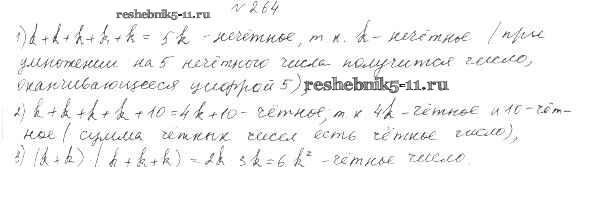 reshebnik5-11.ru
№264
1) k+k+k+k+k = 5k - нечётное, т к. k - нечётное (при
умножении на 5 нечётного числа получится число,
оканчивающееся цифрой 5) reshebnik5-11.ru
2) k+k+k+k+10=4k+10 - чётное, т к 4k - чётное и 10 - чёт-
ное (сумма четных чисел есть чётное число),
3) (k+k) (k+k+k) = 2k 3k = 6k² - чётное число.